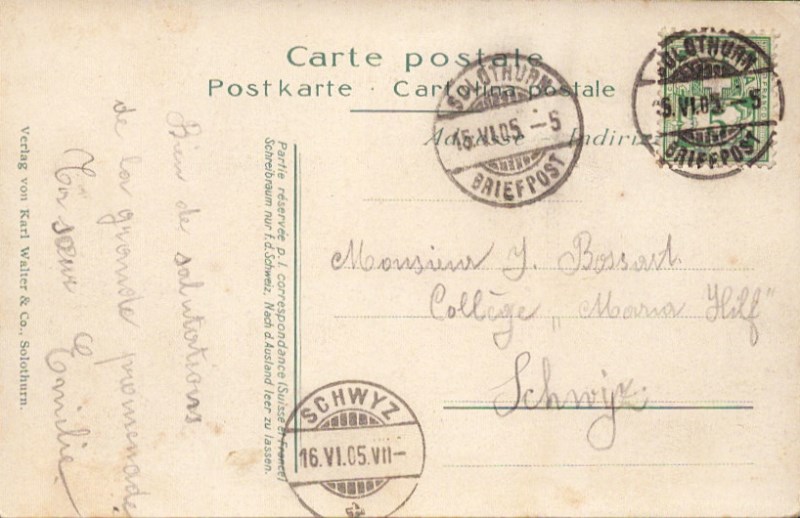 Carte postale
Postkarte · Cartolina postale
Adresse - Indirizzo
SOLOTHURN
15.VI.05.-5
BRIEFPOST
SOLOTHURN
15.VI.05.-5
BRIEFPOST
Monsieur J. Bossart.
Collège „Maria Hilf"
Schwyz.
SCHWYZ
16.VI.05.VII-
Partie réservée p. l. correspondance (Suisse et France)
Schreibraum nur f. d. Schweiz. Nach d. Ausland leer zu lassen.
Bien de salutations
de la grande promenade
Ta sœur Emilie.
Verlag von Karl Walter & Co., Solothurn.